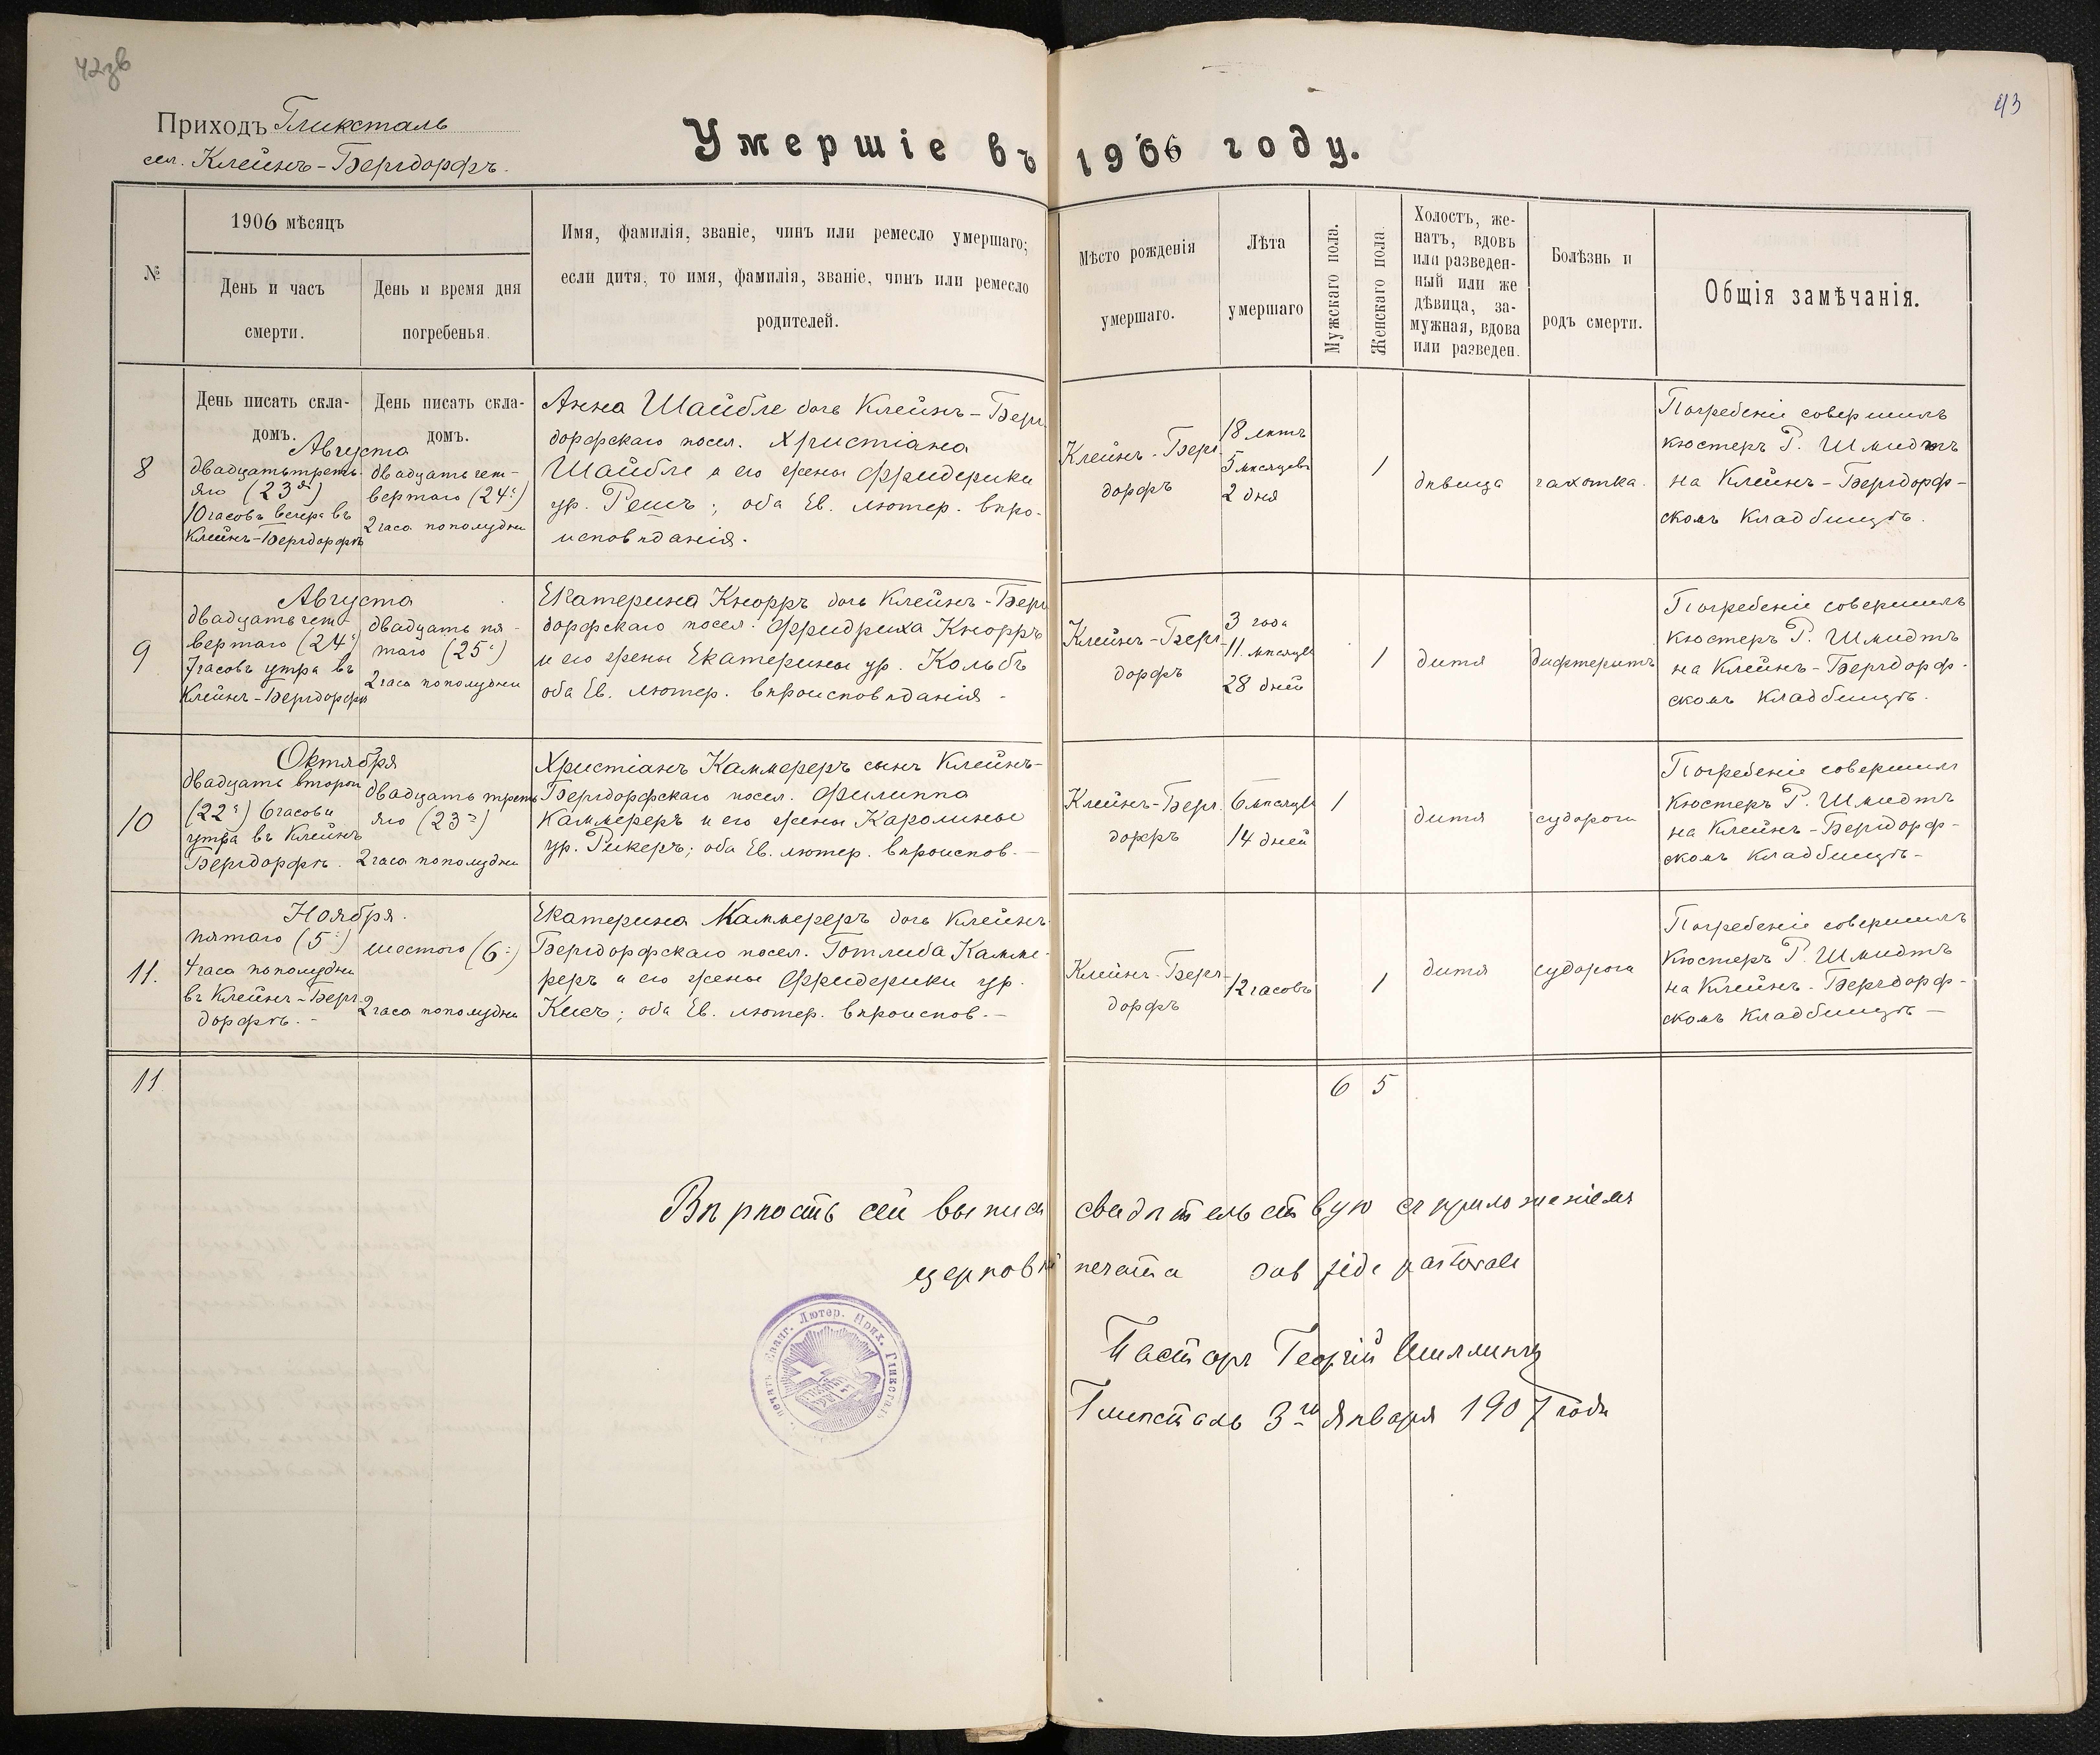 42зв
43
Приходъ Гликсталь
сел. Клейнъ-Бергдорфъ.
Умершіе въ 1906 году.
№
1906 мѣсяцъ
День и часъ
смерти.
День и время дня
погребенья.
Имя, фамилія, званіе, чинъ или ремесло умершаго;
если дитя, то имя, фамилія, званіе, чинъ или ремесло
родителей.
Мѣсто рожденія
умершаго.
Лѣта
умершаго
Мужскаго пола.
Женскаго пола.
Холостъ, же-
натъ, вдовъ
или разведен-
ный или же
дѣвица, за-
мужная, вдова
или разведен.
Болѣзнь и
родъ смерти.
Общія замѣчанія.
День писать скла-
домъ.
День писать скла-
домъ.
8
Августа
двадцатьтреть-
яго (23го)
10 часовъ вечера въ
Клейнъ-Бергдорфѣ
двадцать чет-
вертаго (24го)
2 часа пополудни
Анна Шайбле дочь Клейнъ-Берг
дорфскаго посел. Христіана
Шайбле и его жены Фридерики
ур. Решъ; оба Ев. лютер. вѣро-
исповѣданія.
Клейнъ-Берг-
дорфъ
18 лѣтъ
5 мѣсяцевъ
2 дня
1
дѣвица
чахотка.
Погребеніе совершилъ
кюстеръ Р. Шмидтъ
на Клейнъ-Бергдорф-
скомъ кладбищѣ.
9
Августа
двадцать чет-
вертаго (24го)
7 часовъ утра въ
Клейнъ-Бергдорфѣ
двадцать пя-
таго (25го)
2 часа пополудни
Екатерина Кнорръ дочь Клейнъ-Берг
дорфскаго посел. Фридриха Кнорръ
и его жены Екатерины ур. Кольбъ
оба Ев. лютер. вѣроисповѣданія -
Клейнъ-Берг-
дорфъ
3 года
11 мѣсяцевъ
28 дней
1
дитя
дифтеритъ
Погребеніе совершилъ
кюстеръ Р. Шмидтъ
на Клейнъ-Бергдорф-
скомъ кладбищѣ.
10
Октября
двадцать второго
(22го) 6 часовъ
утра въ Клейнъ
Бергдорфѣ.
двадцать треть
яго (23го)
2 часа пополудни
Христіанъ Каммереръ сынъ Клейнъ-
Бергдорфскаго посел. Филиппа
Каммереръ и его жены Каролины
ур. Рикеръ; оба Ев. лютер. вѣроиспов. -
Клейнъ-Берг.
доррръ
6 мѣсяцевъ
14 дней
1
дитя
судороги
Погребеніе совершилъ
кюстеръ Р. Шмидтъ
на Клейнъ-Бергдорф-
скомъ кладбищѣ -
11.
Ноября.
пятаго (5го)
4 часа пополудни
въ Клейнъ-Берг-
дорфѣ. -
шестого (6го)
2 часа пополудни
Екатерина Каммереръ дочь Клейнъ-
Бергдорфскаго посел. Готлиба Камме-
реръ и его жены Фридерики ур.
Кисъ; оба Ев. лютер. вѣроиспов. -
Клейнъ-Берг-
дорфъ
12 часовъ
1
дитя
судорога
Погребеніе совершилъ
кюстеръ Р. Шмидтъ
на Клейнъ-Бергдорф-
скомъ кладбищѣ -
11
6
5
Вѣрность сей выписи свидѣтельствую съ приложеніемъ
церковной печати sub fide pastorale
Пасторъ Георгій Шиллингъ
Гликсталь 3го Января 1907 года
печать Еванг. Лютер. Прих. Гликсталь